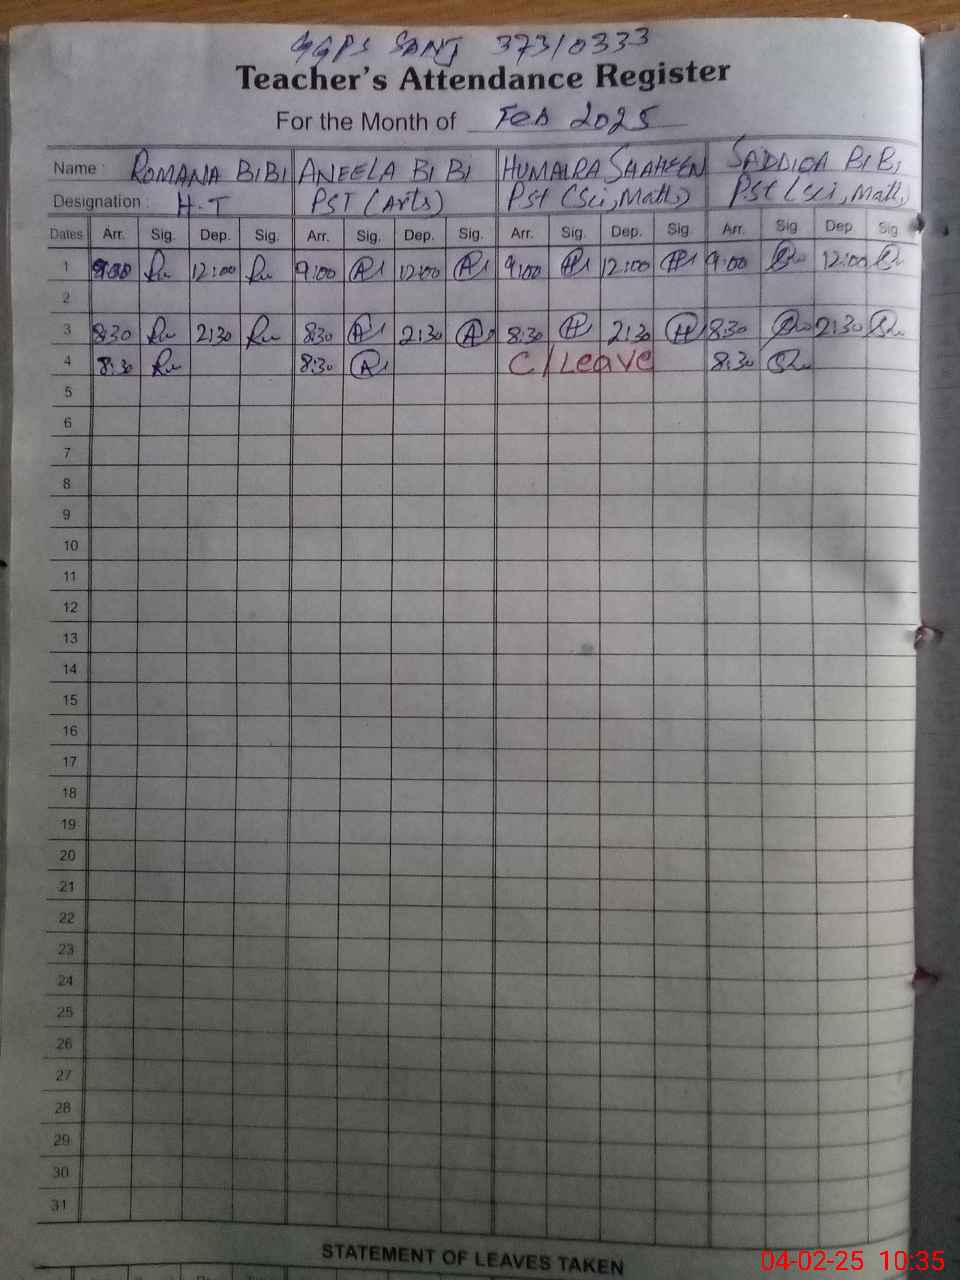 GGPS SANJ 37310333
Teacher's Attendance Register
For the Month of Feb 2025
Name : ROMANA BIBI ANEELA BIBI HUMAIRA SHAHEEN SADDIQA BIBI
Designation : H.T PST (Arts) PST (Sci, Math) PST (Sci, Math)
Dates Arr. Sig. Dep. Sig. Arr. Sig. Dep. Sig. Arr. Sig. Dep. Sig. Arr. Sig Dep. Sig
1 9:00 12:00 9:00 12:00 9:00 12:00 9:00 12:00
2
3 8:30 2:30 8:30 2:30 8:30 2:30 8:30 2:30
4 8:30 8:30 C/Leave 8:30
5
6
7
8
9
10
11
12
13
14
15
16
17
18
19
20
21
22
23
24
25
26
27
28
29
30
31
STATEMENT OF LEAVES TAKEN
04-02-25 10:35